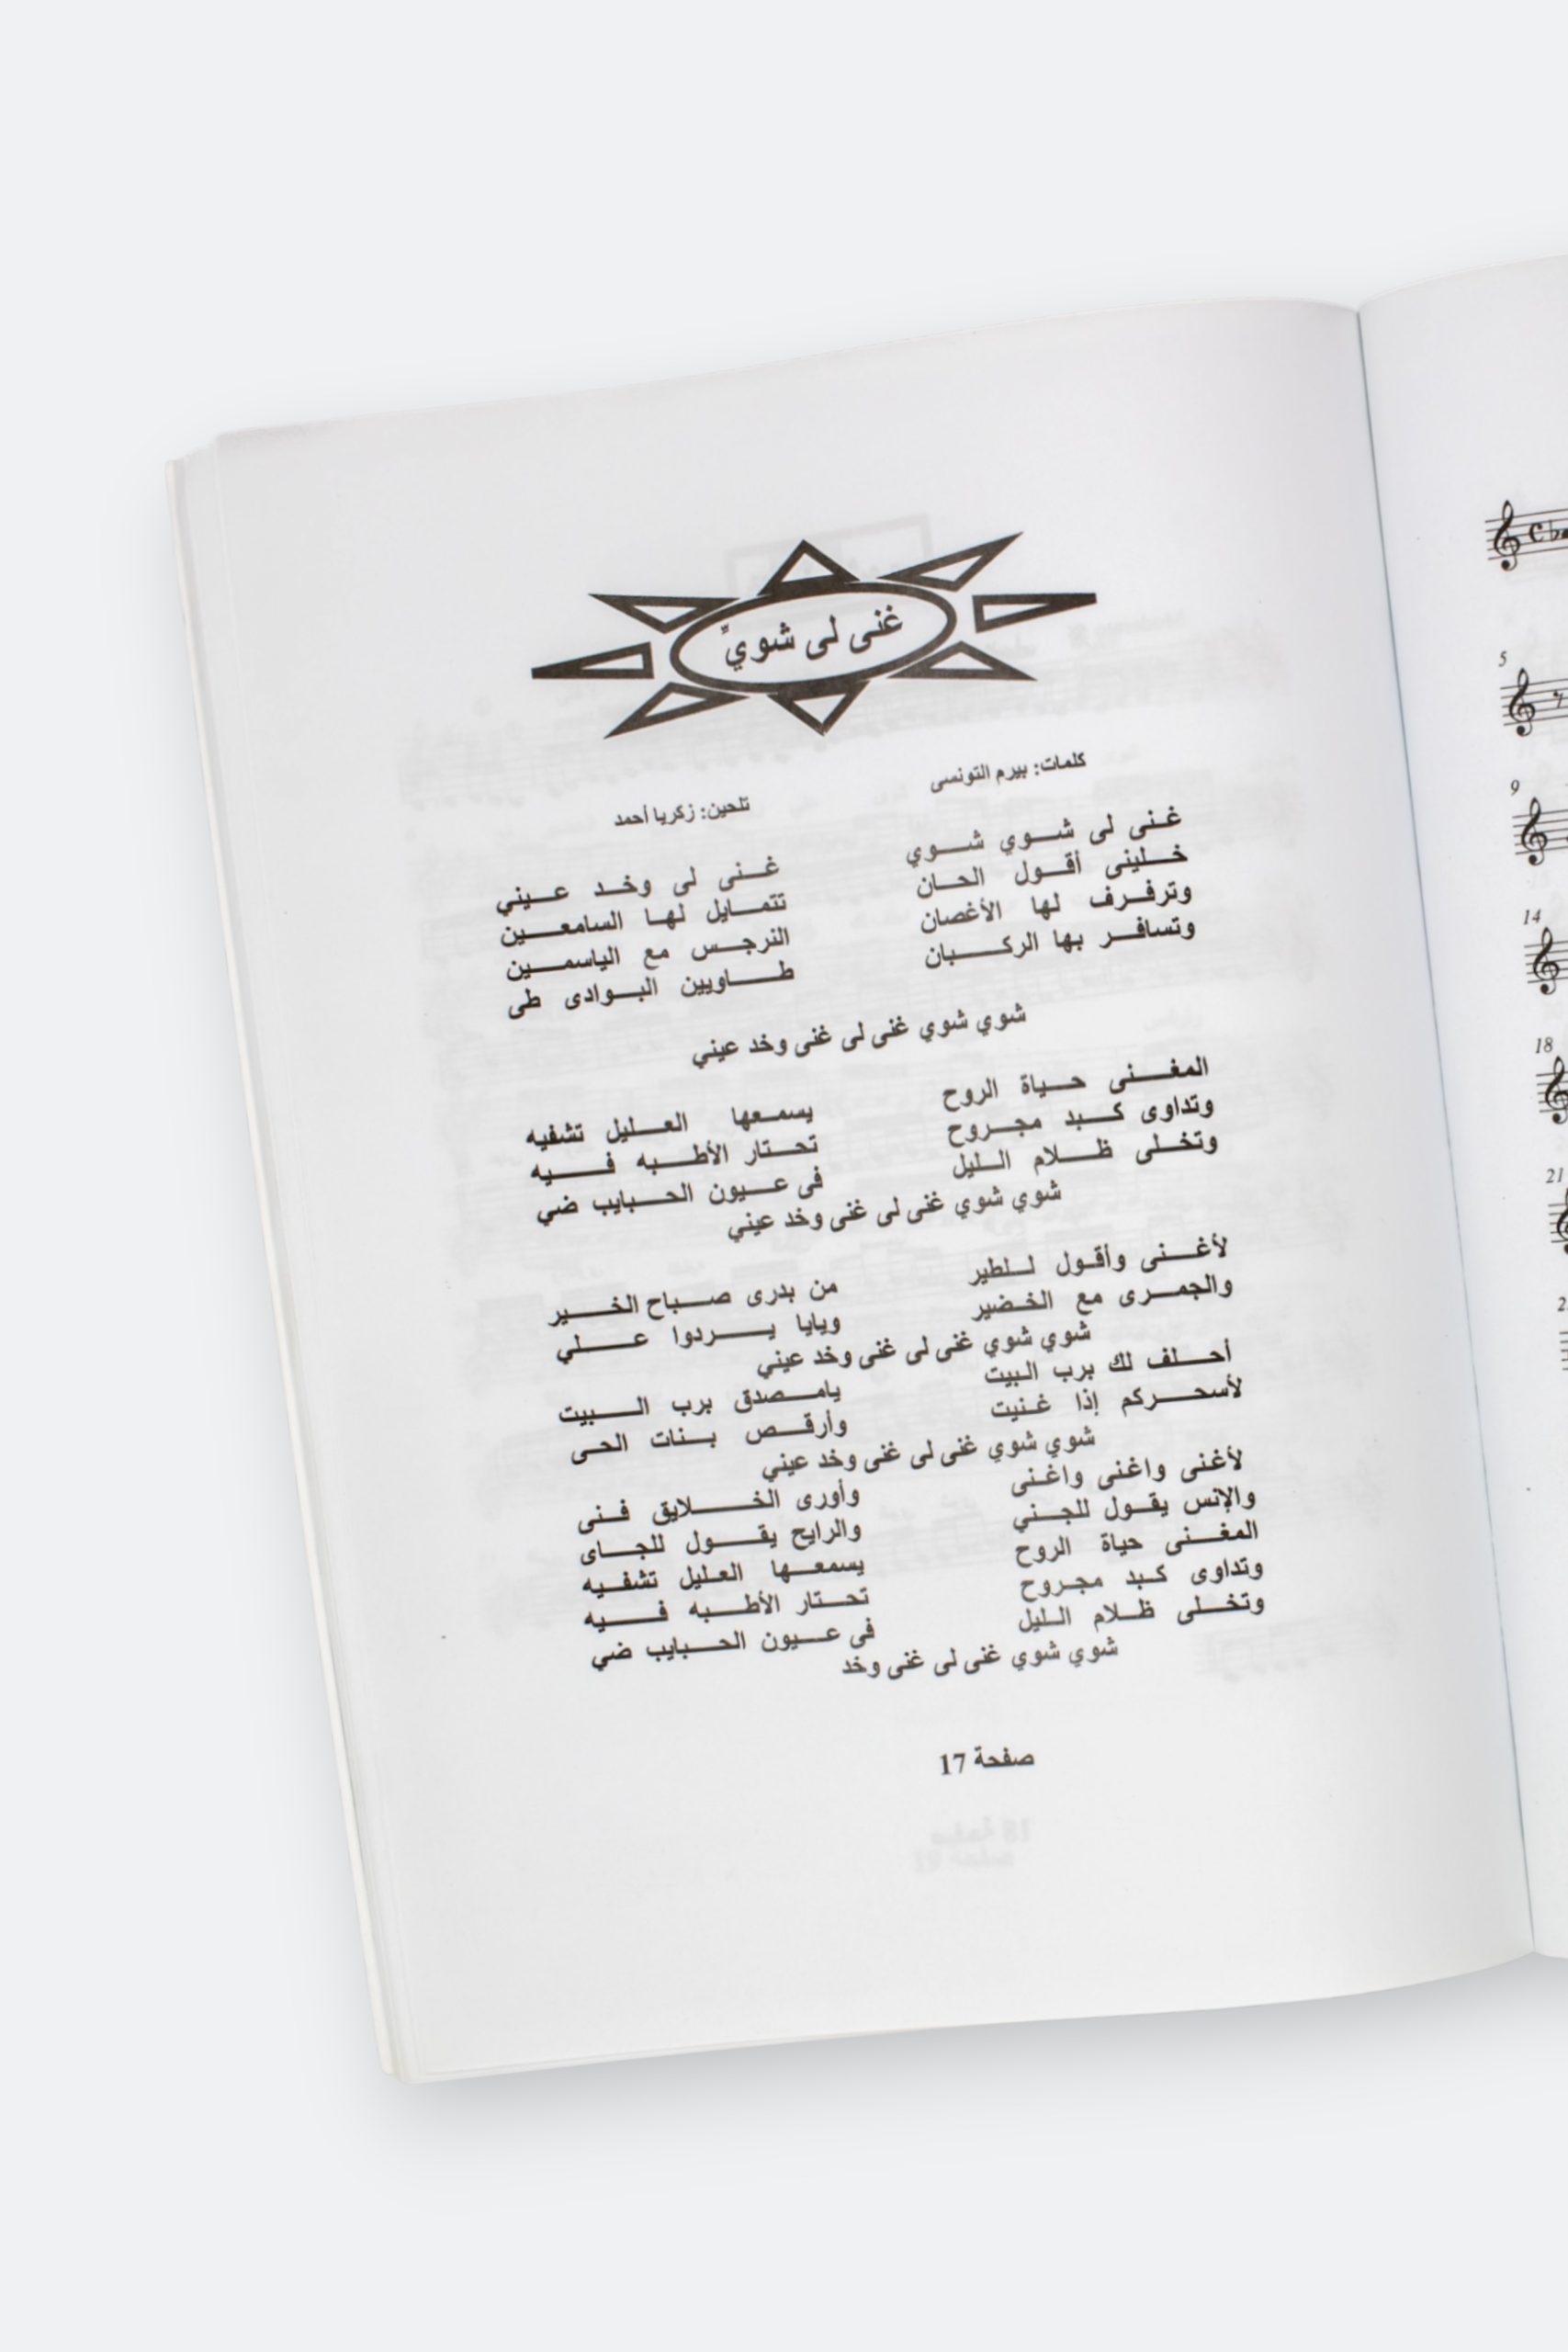 غنى لى شويِّ
كلمات: بيرم التونسى تلحين: زكريا أحمد
غنى لى شوي شوي غنى لى وخد عيني
خلينى أقول الحان تتمايل لها السامعين
وترفرف لها الأغصان النرجس مع الياسمين
وتسافر بها الركبان طاويين البوادى طى
شوي شوي غنى لى غنى وخد عيني
المغنى حياة الروح يسمعها العليل تشفيه
وتداوى كبد مجروح تحتار الأطبه فيه
وتخلى ظلام الليل فى عيون الحبايب ضي
شوي شوي غنى لى غنى وخد عيني
لأغنى وأقول للطير من بدرى صباح الخير
والجمرى مع الخضير ويايا يردوا علي
شوي شوي غنى لى غنى وخد عيني
أحلف لك برب البيت يامصدق برب البيت
لأسحركم إذا غنيت وأرقص بنات الحى
شوي شوي غنى لى غنى وخد عيني
لأغنى واغنى واغنى وأورى الخلايق فنى
والإنس يقول للجني والرايح يقول للجاى
المغنى حياة الروح يسمعها العليل تشفيه
وتداوى كبد مجروح تحتار الأطبه فيه
وتخلى ظلام الليل فى عيون الحبايب ضي
شوي شوي غنى لى غنى وخد
صفحة 17
5
9
14
18
21